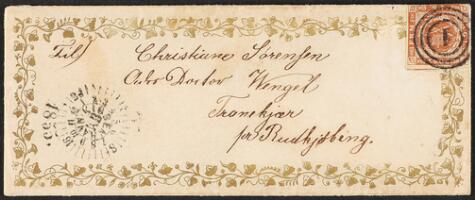 Til/ Christiane Sørensen
Adr: Doctor Wengel
Tranekjær
pr Rudkjøbing.
1
1855.